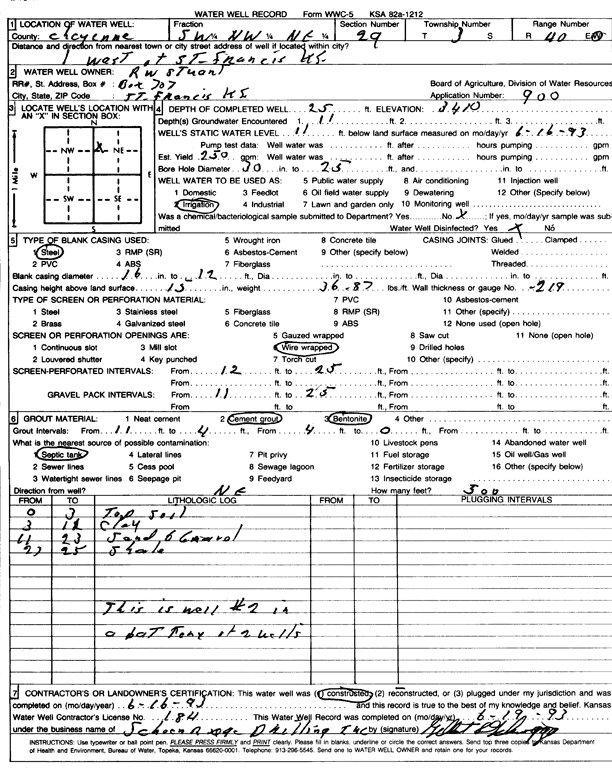 WATER WELL RECORD Form WWC-5 KSA 82a-1212
1 LOCATION OF WATER WELL: Fraction Section Number Township Number Range Number
County: Cheyenne SW ¼ NW ¼ NE ¼ 29 T 3 S R 40 E/W
Distance and direction from nearest town or city street address of well if located within city?
West of St-Francis KS.
2 WATER WELL OWNER: RW Stuart
RR#, St. Address, Box # : Box 707 Board of Agriculture, Division of Water Resources
City, State, ZIP Code : ST. Francis KS Application Number: 900
3 LOCATE WELL'S LOCATION WITH AN "X" IN SECTION BOX: 4 DEPTH OF COMPLETED WELL 25 ft. ELEVATION: 3410
Depth(s) Groundwater Encountered 1. 11 ft. 2. ft. 3. ft.
WELL'S STATIC WATER LEVEL 11 ft. below land surface measured on mo/day/yr 6-16-93
Pump test data: Well water was ft. after hours pumping gpm
Est. Yield 250 gpm: Well water was ft. after hours pumping gpm
Bore Hole Diameter 30 in. to 25 ft., and in. to ft.
WELL WATER TO BE USED AS: 5 Public water supply 8 Air conditioning 11 Injection well
1 Domestic 3 Feedlot 6 Oil field water supply 9 Dewatering 12 Other (Specify below)
2 Irrigation 4 Industrial 7 Lawn and garden only 10 Monitoring well
Was a chemical/bacteriological sample submitted to Department? Yes No X ; If yes, mo/day/yr sample was submitted Water Well Disinfected? Yes X No
N
NW NE
W E
SW SE
S
1 Mile
5 TYPE OF BLANK CASING USED: 5 Wrought iron 8 Concrete tile CASING JOINTS: Glued Clamped
1 Steel 3 RMP (SR) 6 Asbestos-Cement 9 Other (specify below) Welded
2 PVC 4 ABS 7 Fiberglass Threaded
Blank casing diameter 16 in. to 12 ft., Dia in. to ft., Dia in. to ft.
Casing height above land surface 15 in., weight 36.87 lbs./ft. Wall thickness or gauge No. .219
TYPE OF SCREEN OR PERFORATION MATERIAL: 7 PVC 10 Asbestos-cement
1 Steel 3 Stainless steel 5 Fiberglass 8 RMP (SR) 11 Other (specify)
2 Brass 4 Galvanized steel 6 Concrete tile 9 ABS 12 None used (open hole)
SCREEN OR PERFORATION OPENINGS ARE: 5 Gauzed wrapped 8 Saw cut 11 None (open hole)
1 Continuous slot 3 Mill slot 6 Wire wrapped 9 Drilled holes
2 Louvered shutter 4 Key punched 7 Torch cut 10 Other (specify)
SCREEN-PERFORATED INTERVALS: From 12 ft. to 25 ft., From ft. to ft.
From ft. to ft., From ft. to ft.
GRAVEL PACK INTERVALS: From 11 ft. to 25 ft., From ft. to ft.
From ft. to ft., From ft. to ft.
6 GROUT MATERIAL: 1 Neat cement 2 Cement grout 3 Bentonite 4 Other
Grout Intervals: From 11 ft. to 4 ft., From 4 ft. to 0 ft., From ft. to ft.
What is the nearest source of possible contamination: 10 Livestock pens 14 Abandoned water well
1 Septic tank 4 Lateral lines 7 Pit privy 11 Fuel storage 15 Oil well/Gas well
2 Sewer lines 5 Cess pool 8 Sewage lagoon 12 Fertilizer storage 16 Other (specify below)
3 Watertight sewer lines 6 Seepage pit 9 Feedyard 13 Insecticide storage
Direction from well? NE How many feet? 500
FROM TO LITHOLOGIC LOG FROM TO PLUGGING INTERVALS
0 3 Top Soil
3 11 Clay
11 23 Sand & Gravel
23 25 Shale
This is well #2 in
a battery of 2 wells
7 CONTRACTOR'S OR LANDOWNER'S CERTIFICATION: This water well was (1) constructed, (2) reconstructed, or (3) plugged under my jurisdiction and was
completed on (mo/day/year) 6-16-93 and this record is true to the best of my knowledge and belief. Kansas
Water Well Contractor's License No. 184 This Water Well Record was completed on (mo/day/yr) 6-19-93
under the business name of Drilling Inc by (signature)
INSTRUCTIONS: Use typewriter or ball point pen. PLEASE PRESS FIRMLY and PRINT clearly. Please fill in blanks, underline or circle the correct answers. Send top three copies to Kansas Department
of Health and Environment, Bureau of Water, Topeka, Kansas 66620-0001. Telephone: 913-296-5545. Send one to WATER WELL OWNER and retain one for your records.